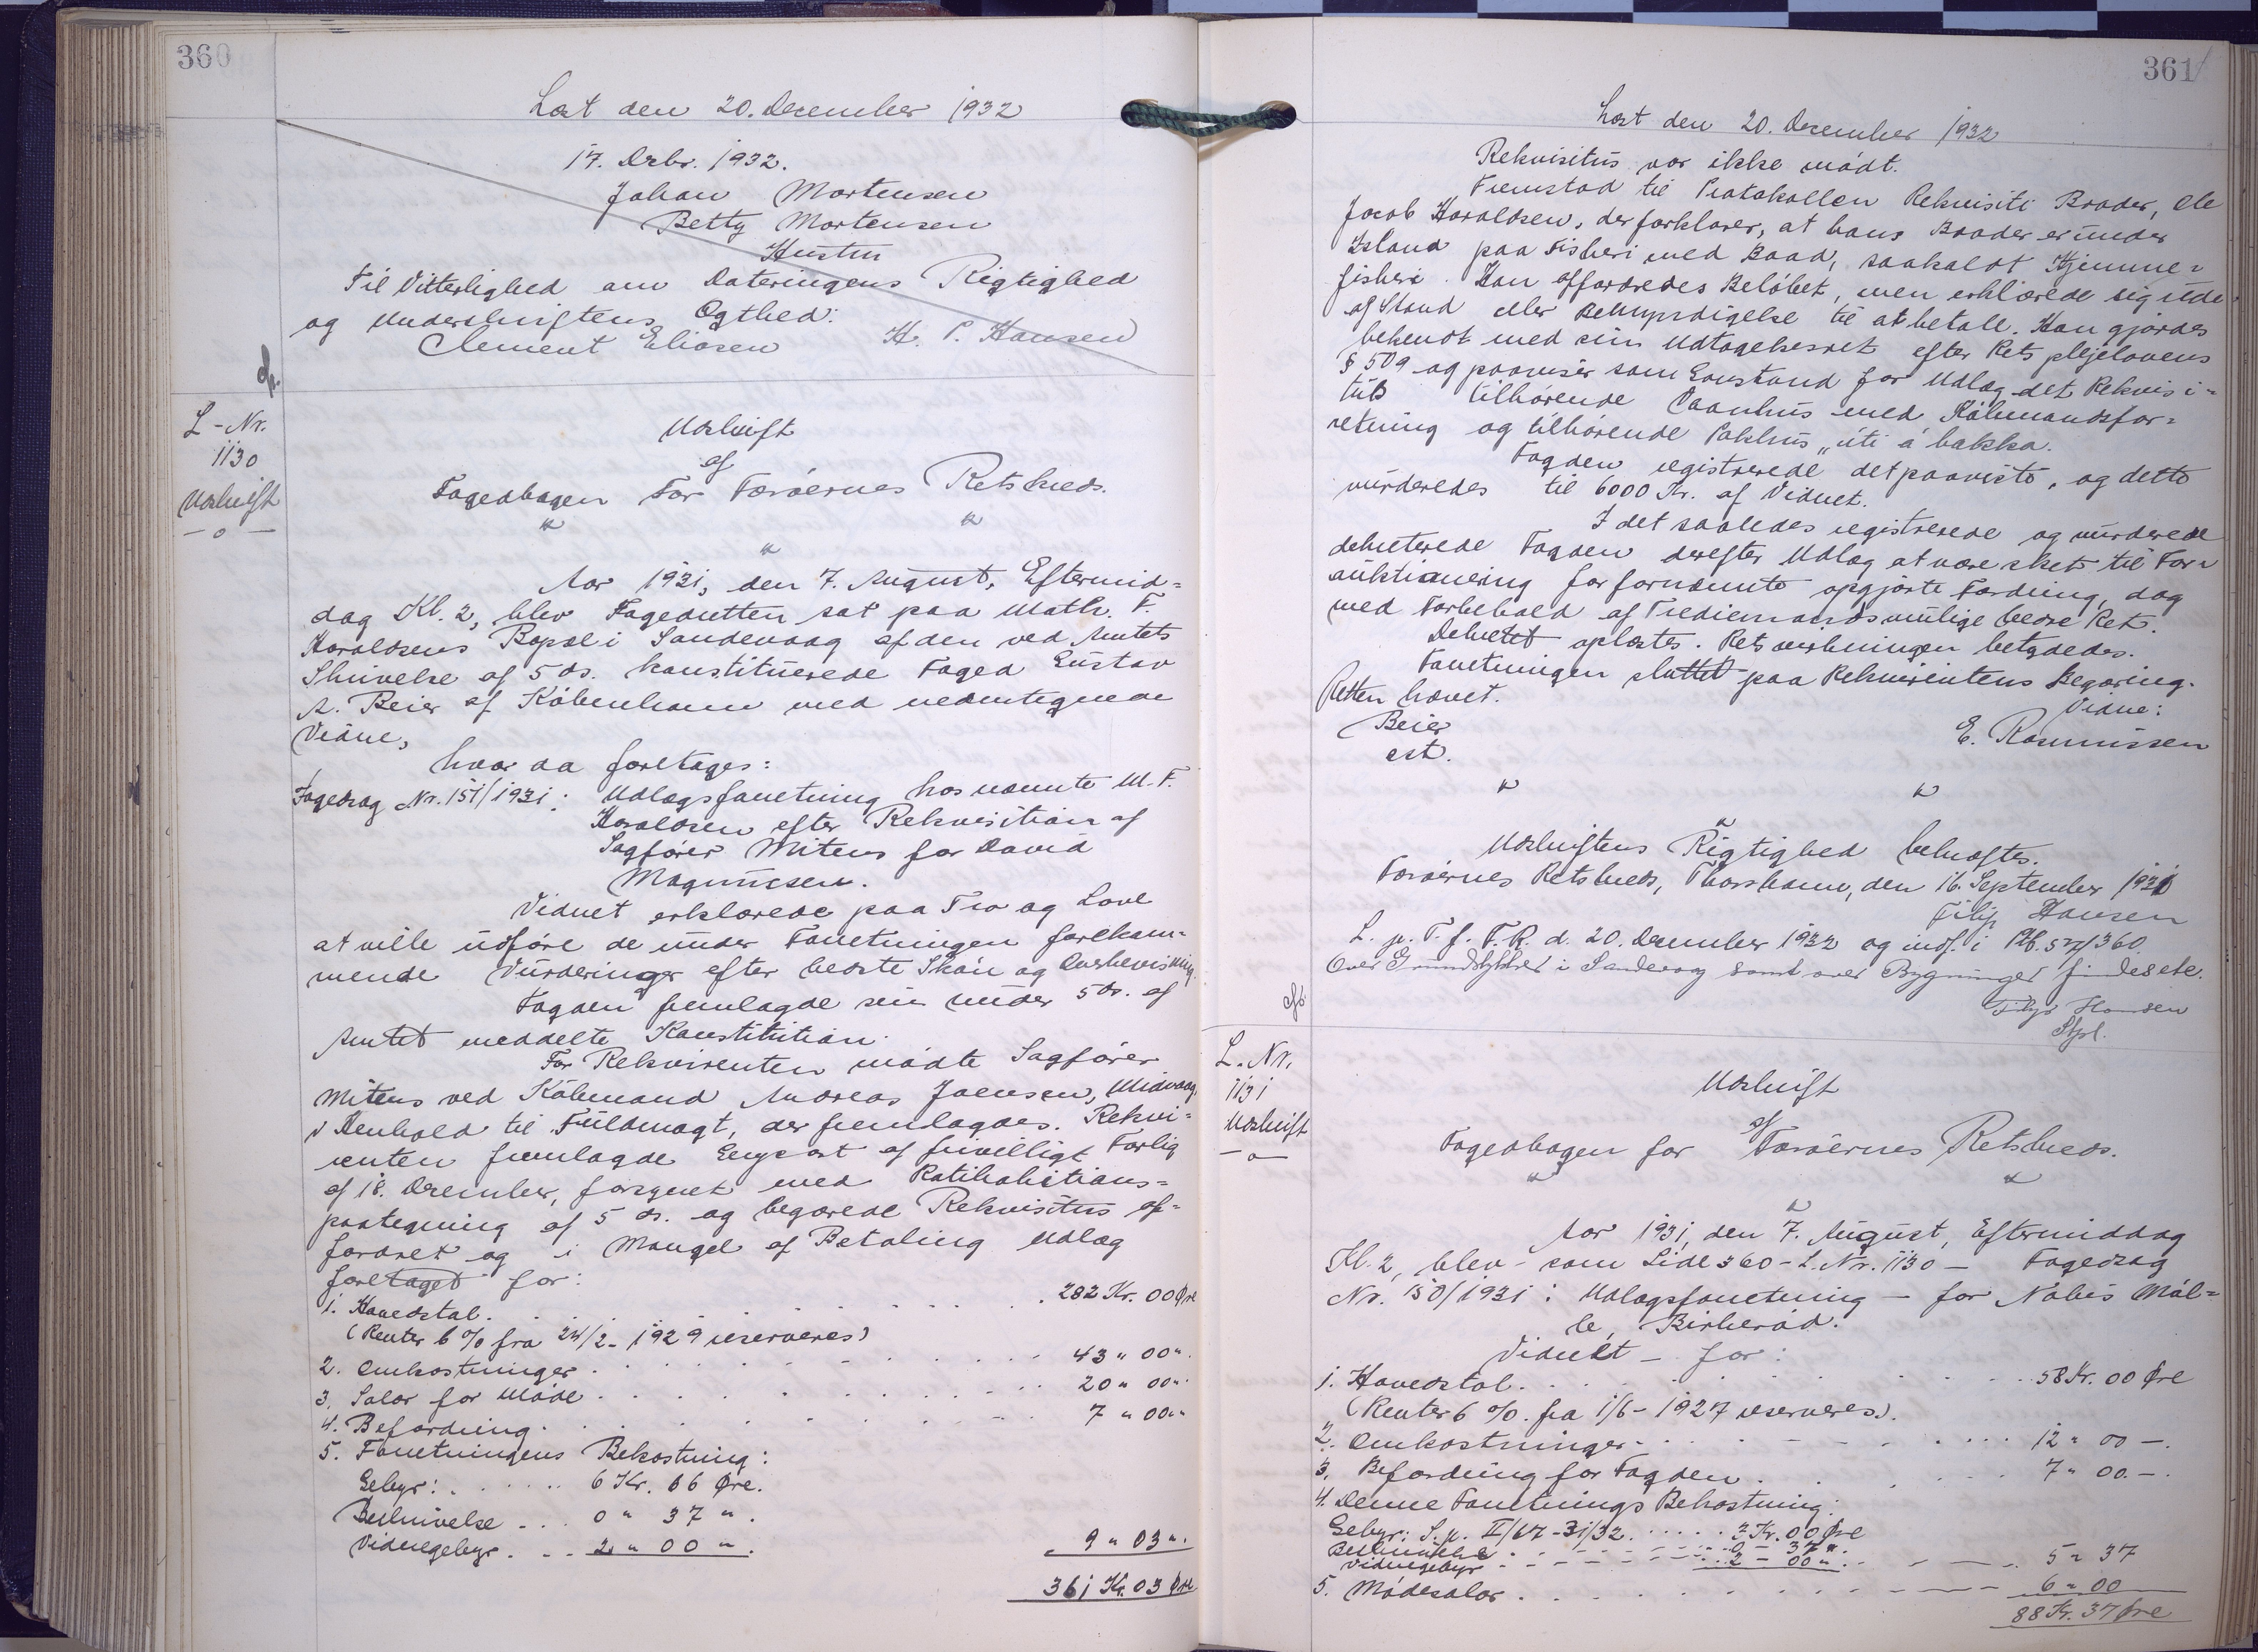 360
Læst den 20. December 1932
17. Decbr. 1932.
Johan Mortensen
Betty Mortensen
Hustru
Til Vitterlighed om Dateringens Rigtighed
og Underskriftens Ægthed:
Clement Eliasen H. P. Hansen
L-Nr.
1130
Udskrift
Udskrift
af
Fogedbogen For Færøernes Retskreds.
Aar 1931, den 7. August, Eftermid=
dag Kl. 2, blev Fogedretten sat paa Math. F.
Haraldsens Bopæl i Sandevaag af den ved Amtets
Skrivelse af 5 ds. konstituerede Foged Gustav
A. Beier af København med nedentegnede
Vidne,
hvor da foretoges:
Fogedsag Nr. 151/1931: Udlægsforretning hos nævnte M. F.
Haraldsen efter Rekvisition af
Sagfører Mitens for David
Magnussen.
Vidnet erklærede paa Tro og Love
at ville udføre de under Forretningen forekom=
mende Vurderinger efter bedste Skøn og Overbevisning.
Fogden fremlagde sin under 5 ds. af
Amtet meddelte Konstitution.
For Rekvirenten mødte Sagfører
Mitens ved Købmand Andreas Joensen, Midvaag,
i Henhold til Fuldmagt, der fremlagdes. Rekvi=
renten fremlagde Genpart af frivilligt Forlig
af 18. December, forsynet med Ratihabitions=
paategning af 5 ds. og begærede Rekvisitus af=
fordret og i Mangel af Betaling Udlæg
foretaget for:
1. Hovedstol. . . . 282 Kr. 00 Øre
(Renter 6 % fra 24/2- 1929 reserveres)
2. Omkostninger . . . 43 " 00 ".
3. Salær for Møde . . . 20 " 00 ".
4. Befordring . . . 7 " 00 "
5. Forretningens Bekostning:
Gebyr: . . . 6 Kr. 66 Øre.
Beskrivelse . . . 0 " 37 ".
Vidnegebyr . . . 2 " 00 ". 9 " 03 ".
361 Kr. 03 Øre
361
Læst den 20. December 1932
Rekvisitus var ikke mødt.
Fremstod til Protokollen Rekvisiti Broder, Ole
Jacob Haraldsen, der forklarer, at hans Broder er under
Island paa Fisheri med Baad, saakaldt Hjemme=
fisheri. Han affordredes Beløbet, men erklærede sig ude
af Stand eller Bemyndigelse til at betale. Han gjordes
bekendt med sin Udtagelsesret efter Retsplejelovens
§ 509 og paaviser som Genstand for Udlæg det Rekvisi=
tus tilhørende Vaanhus med Købmandsfor=
retning og tilhørende Pakhus „úti á bakka.
Fogden registrerede det paaviste, og dette
vurderedes til 6000 Kr. af Vidnet.
I det saaledes registrerede og vurderede
dekreterede Fogden derefter Udlæg at være sket til For=
auktionering for fornævnte opgjorte Fordring, dog
med Forbehold af Trediemands mulige bedre Ret.
Dekretet oplæstes. Retsvirkningen betydedes.
Forretningen sluttet paa Rekvirentens Begæring.
Retten hævet.
Beier Vidne:
cst. E. Rasmussen
Udskriftens Rigtighed bekræftes.
Færøernes Retskreds, Thorshavn, den 16. September 1931
Filip Hansen
L. p. T. f. F. R. d. 20. December 1932 og indf. i Ptb. 5 360
Over Grundstykket i Sandevaag samt over Bygninger findes ete.
Filip Hansen
Stfsl.
L. Nr.
1131
Udskrift
Udskrift
af
Fogedbogen for Færøernes Retskreds.
Aar 1931, den 7. August, Eftermiddag
Kl. 2, blev - som Side 360 - L. Nr. 1130 - Fogedsag
Nr. 150/1931: Udlægsforretning - for Nobis Møl=
le, Birkerød.
Vidnet - for:
1. Hovedstol. . . . 58 Kr. 00 Øre
(Renter 6 %. fra 1/6- 1927 reserveres).
2. Omkostninger . . . 12 " 00 -.
3. Befordring for Fogden . . . 7 " 00. -.
4. Denne Forretnings Bekostning:
Gebyr: S. p. II/67-31/32 . . . 3 Kr. 00 Øre
Beskrivelse . . . 0 - 37 ".
Vidnegebyr . . . 2 - 00 ". 5 " 37
5. Mødesalær . . . 6 " 00
88 Kr. 37 Øre